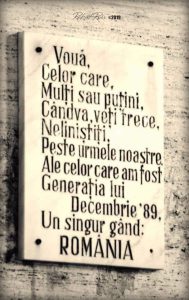 ©2011
Vouă,
Celor care,
Mulți sau puțini,
Cândva, veți trece,
Neliniștiți,
Peste urmele noastre
Ale celor care am fost
Generația lui
Decembrie '89,
Un singur gând:
ROMÂNIA